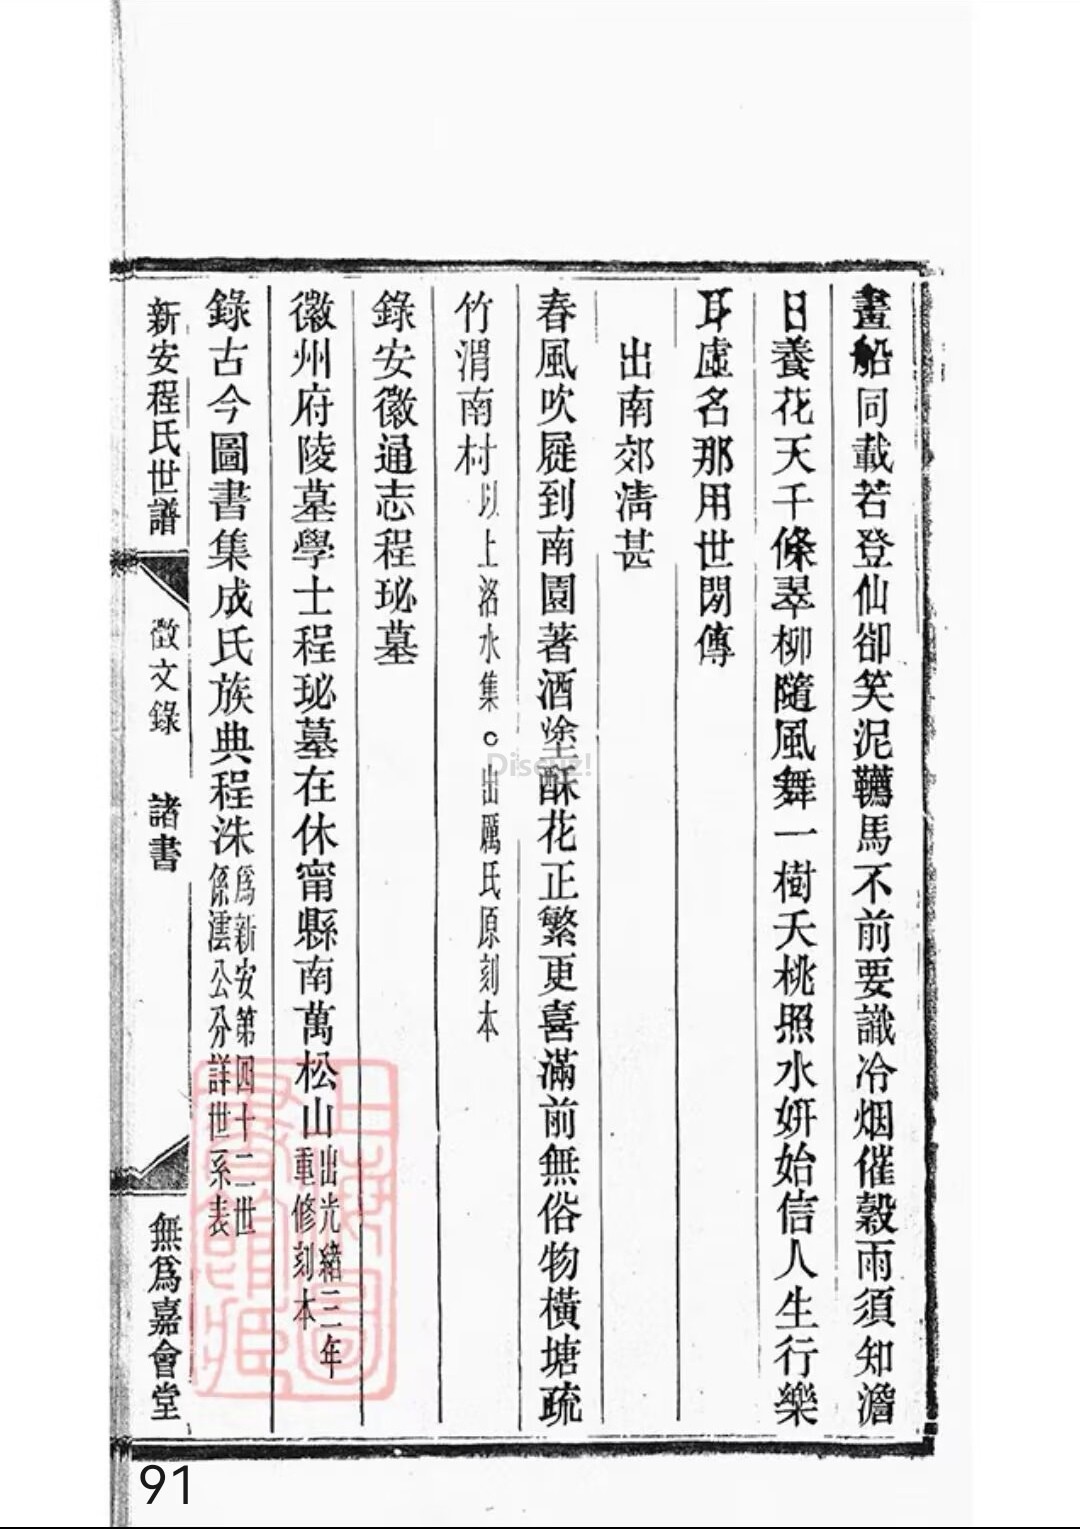 畫船同載若登仙卻笑泥韉馬不前要識冷烟催穀雨須知澹
日養花天千條翠柳隨風舞一樹夭桃照水妍始信人生行樂
耳虛名那用世閒傳
出南郊淸甚
春風吹屣到南園著酒塗酥花正繁更喜滿前無俗物橫塘疏
竹渭南村以上洛水集。出厲氏原刻本
錄安徽通志程珌墓
徽州府陵墓學士程珌墓在休甯縣南萬松山出光緒三年
重修刻本
錄古今圖書集成氏族典程洙爲新安第四十二世
係澐公分詳世系表
新安程氏世譜
徵文錄 諸書
無爲嘉會堂
上海圖書館藏
Discuz!
91